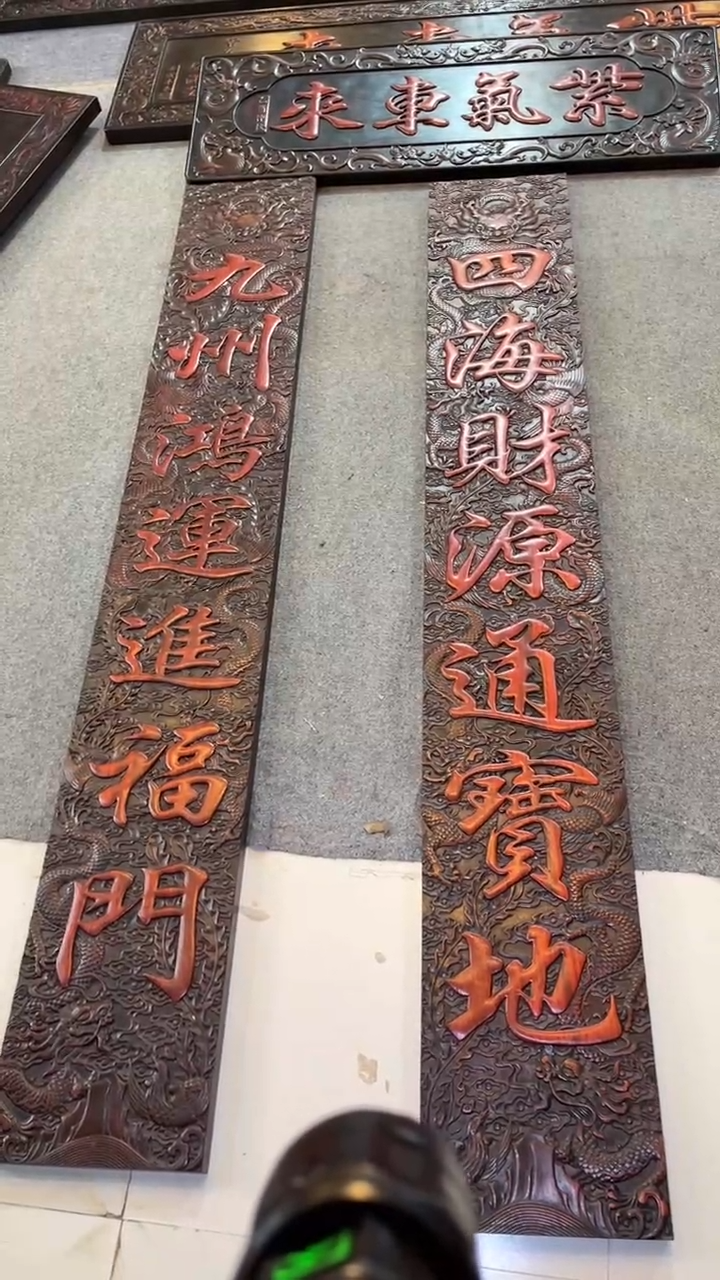 紫氣東來
四海財源通寶地
九州鴻運進福門